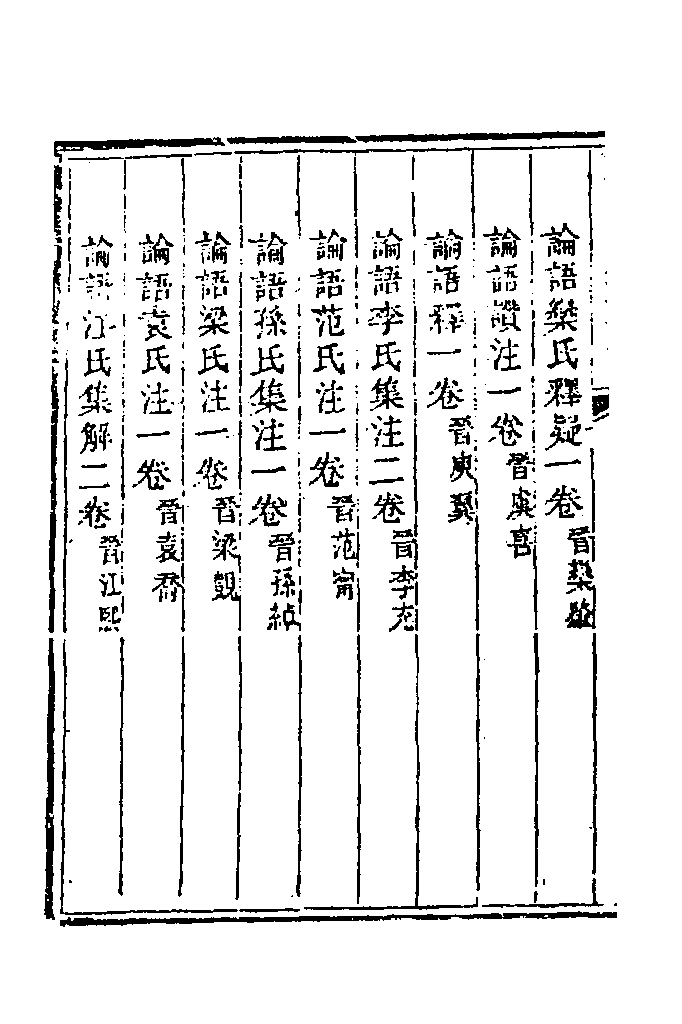 論語欒氏釋疑一卷晉欒肇
論語讚注一卷晉虞喜
論語釋一卷晉庾翼
論語李氏集注二卷晉李充
論語范氏注一卷晉范甯
論語孫氏集注一卷晉孫綽
論語梁氏注一卷晉梁覬
論語袁氏注一卷晉袁喬
論語江氏集解二卷晉江熙